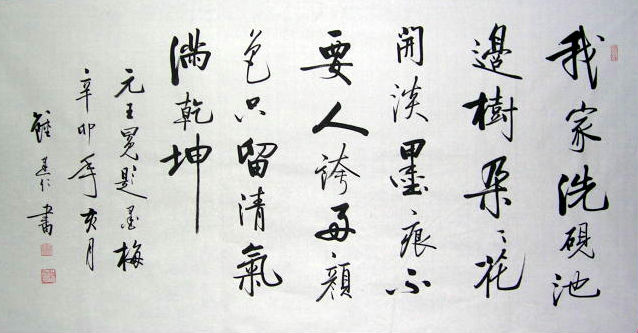 我家洗硯池
邊樹朵々花
開淡墨痕不
要人誇好顏
色只留清氣
滿乾坤
元王冕題墨梅
辛卯年亥月
書